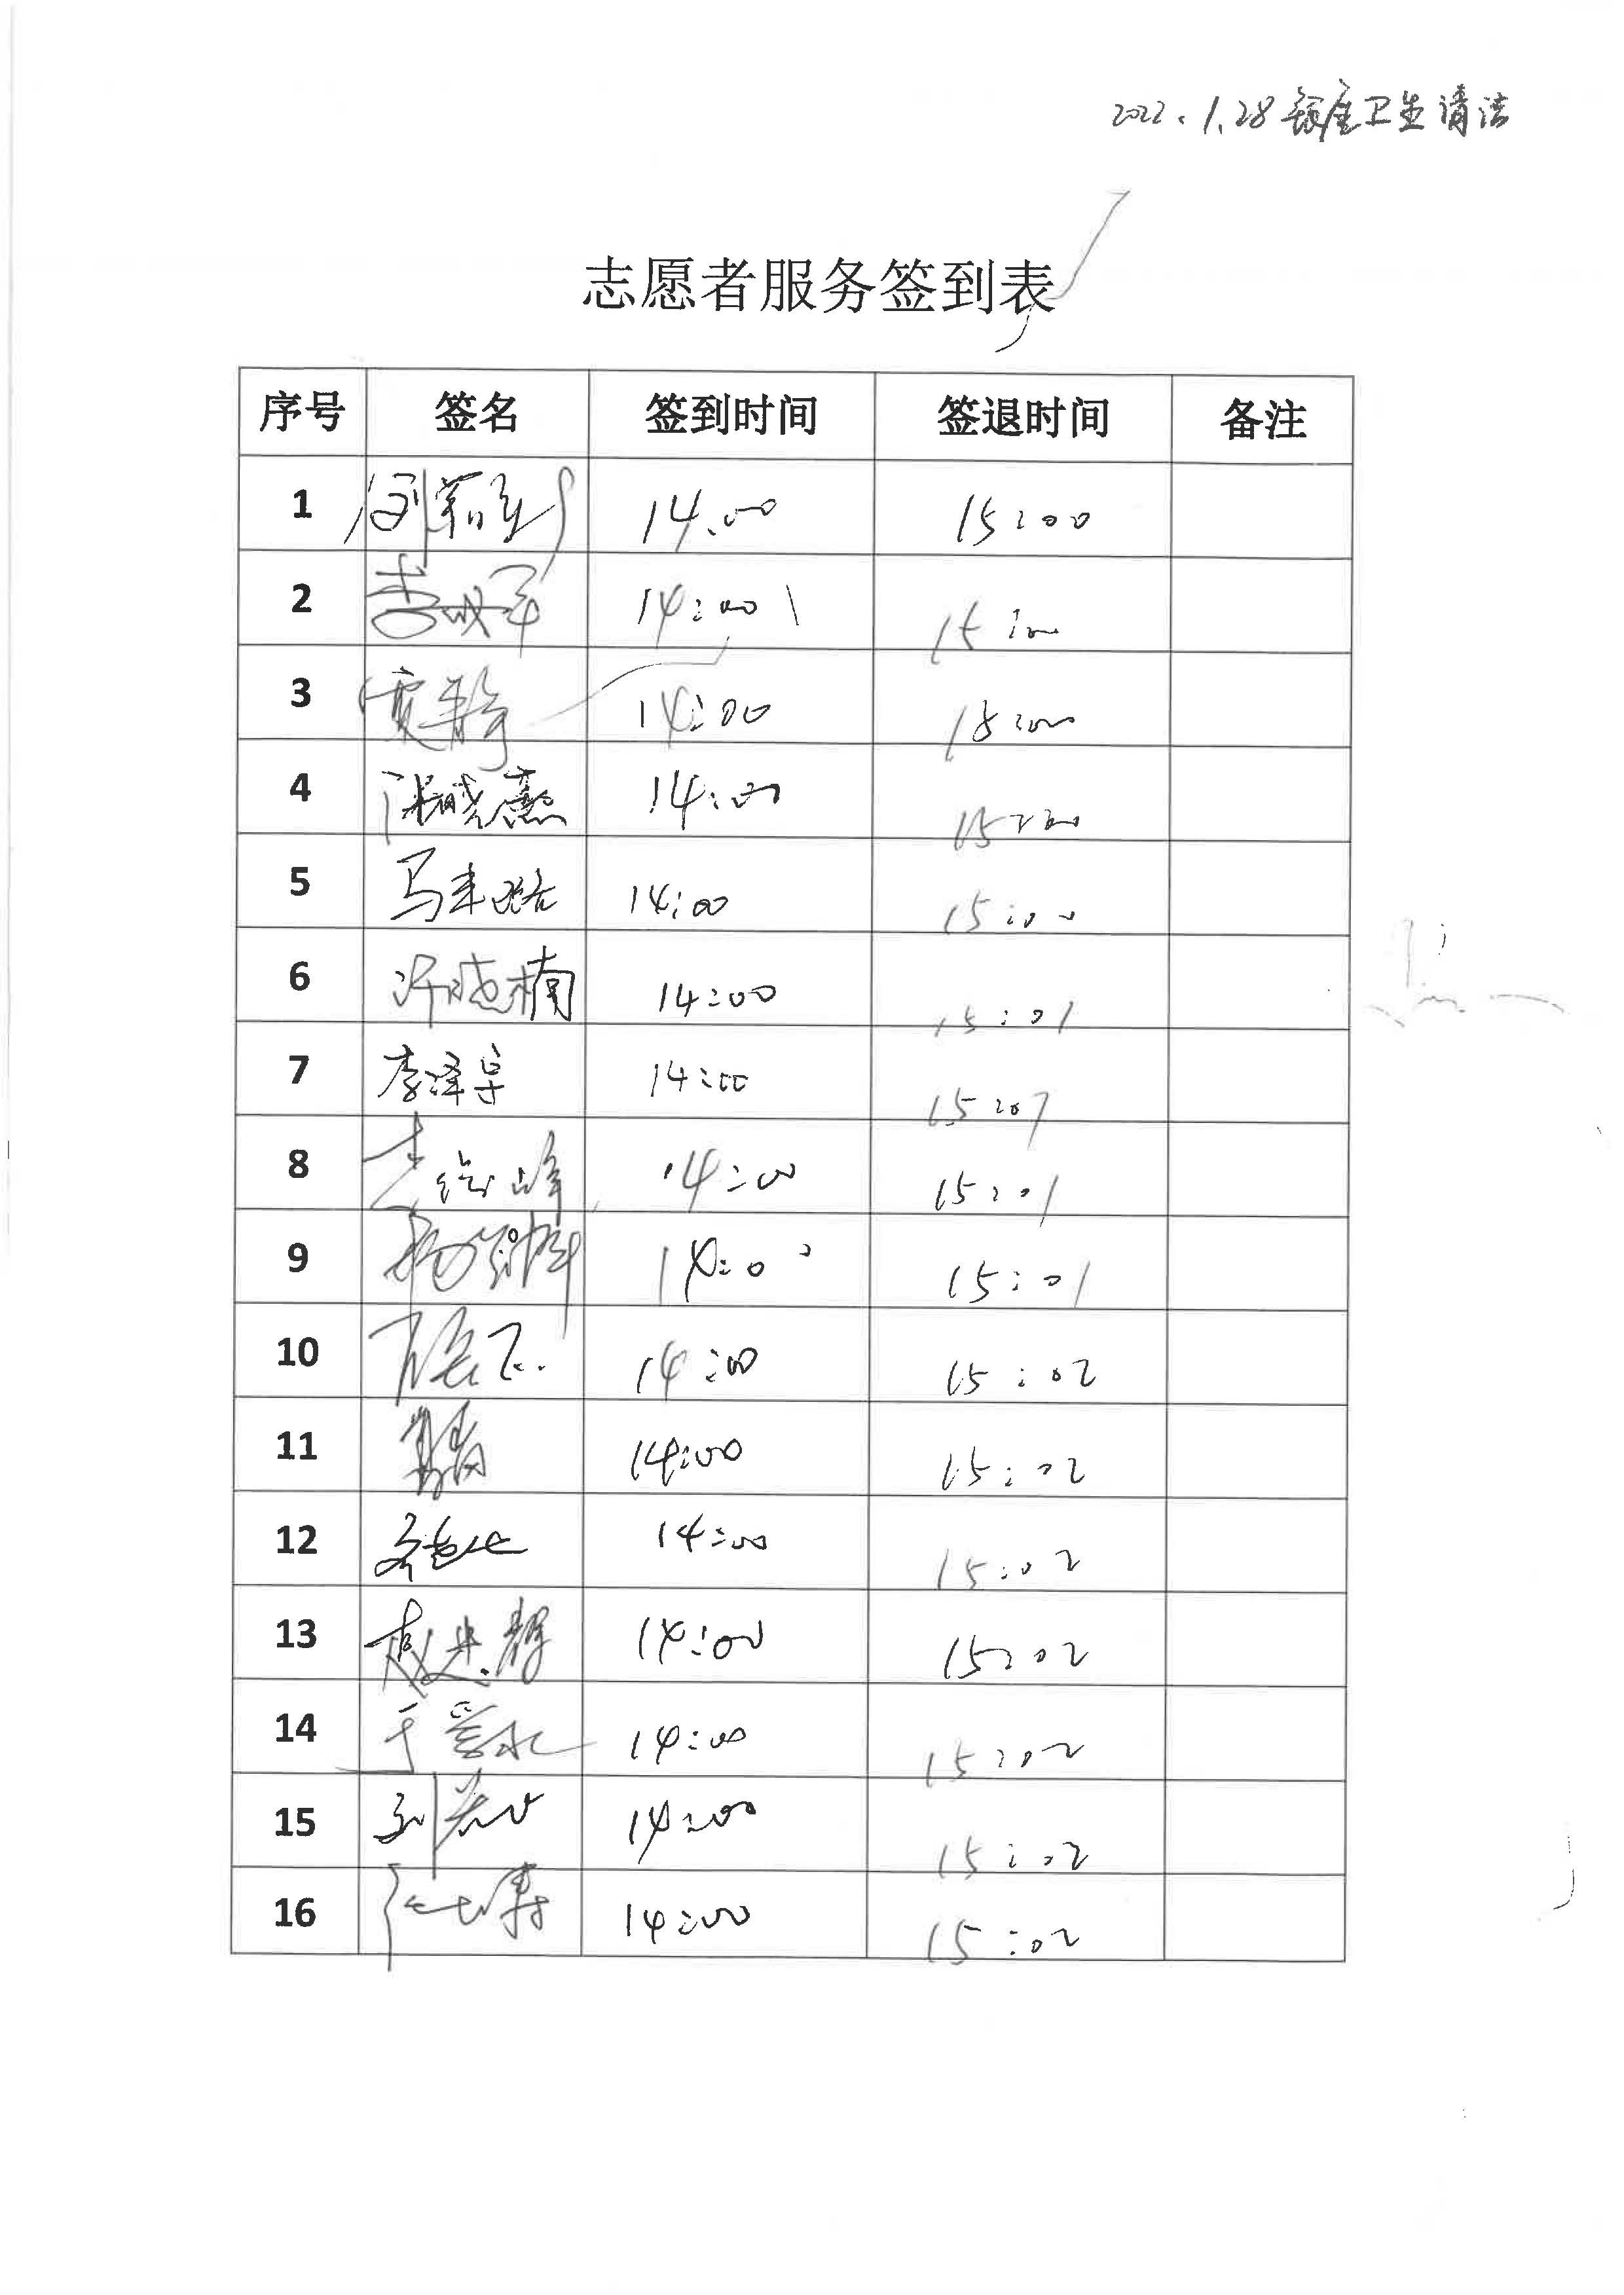 2022.1.28 银座卫生清洁
志愿者服务签到表
序号 签名 签到时间 签退时间 备注
1 14:00 15:00
2 14:00 15:00
3 贾静 14:00 15:00
4 张晓燕 14:00 15:00
5 马丰路 14:00 15:00
6 许晓楠 14:00 15:01
7 李泽宇 14:00 15:07
8 峰 14:00 15:01
9 杨 14:00 15:01
10 飞 14:00 15:02
11 14:00 15:02
12 14:00 15:02
13 赵 辉 14:00 15:02
14 于爱水 14:00 15:02
15 刘 14:00 15:02
16 14:00 15:02